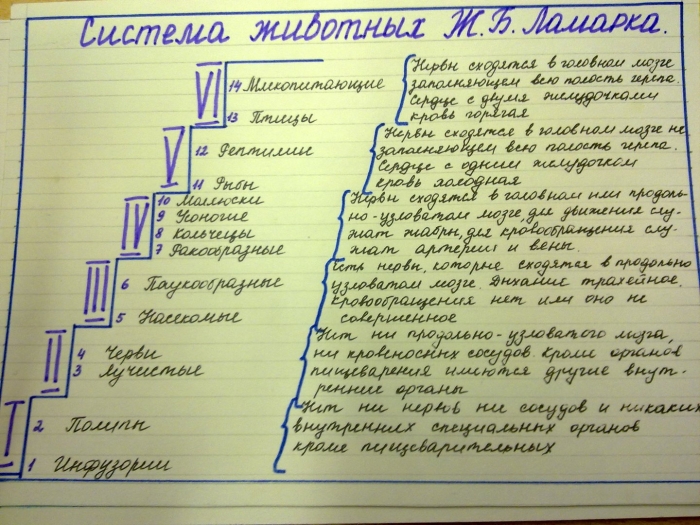 Система животных Ж.Б. Ламарка.
VI
14 Млекопитающие
13 Птицы
Нервы сходятся в головном мозге
заполняющем всю полость черепа.
Сердце с двумя желудочками
кровь горячая
V
12 Рептилии
11 Рыбы
Нервы сходятся в головном мозге не
заполняющем всю полость черепа.
Сердце с одним желудочком
кровь холодная
IV
10 Моллюски
9 Усоногие
8 Кольчецы
7 Ракообразные
Нервы сходятся в головном или продоль-
но-узловатом мозге, для движения слу-
жат жабры, для кровообращения слу-
жат артерии и вены.
III
6 Паукообразные
5 Насекомые
Есть нервы, которые сходятся в продольно
узловатом мозге. Дыхание трахейное,
кровообращения нет или оно не
совершенное
II
4 Черви
3 Лучистые
Нет ни продольно-узловатого мозга,
ни кровеносных сосудов. Кроме органов
пищеварения имеются другие внут-
ренние органы
I
2 Полипы
1 Инфузории
Нет ни нервов ни сосудов и никаких
внутренних специальных органов
кроме пищеварительных